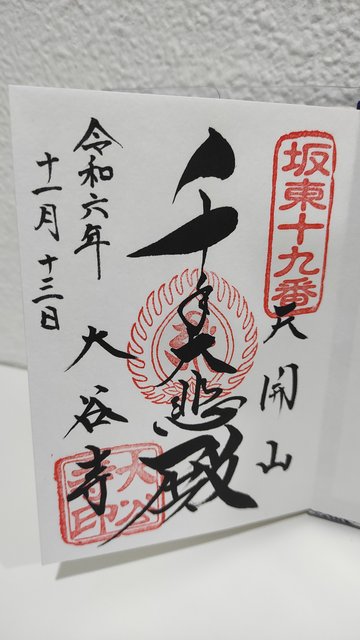 坂東十九番
天開山
千手大悲殿
大谷寺
大谷寺印
令和六年
十一月十三日